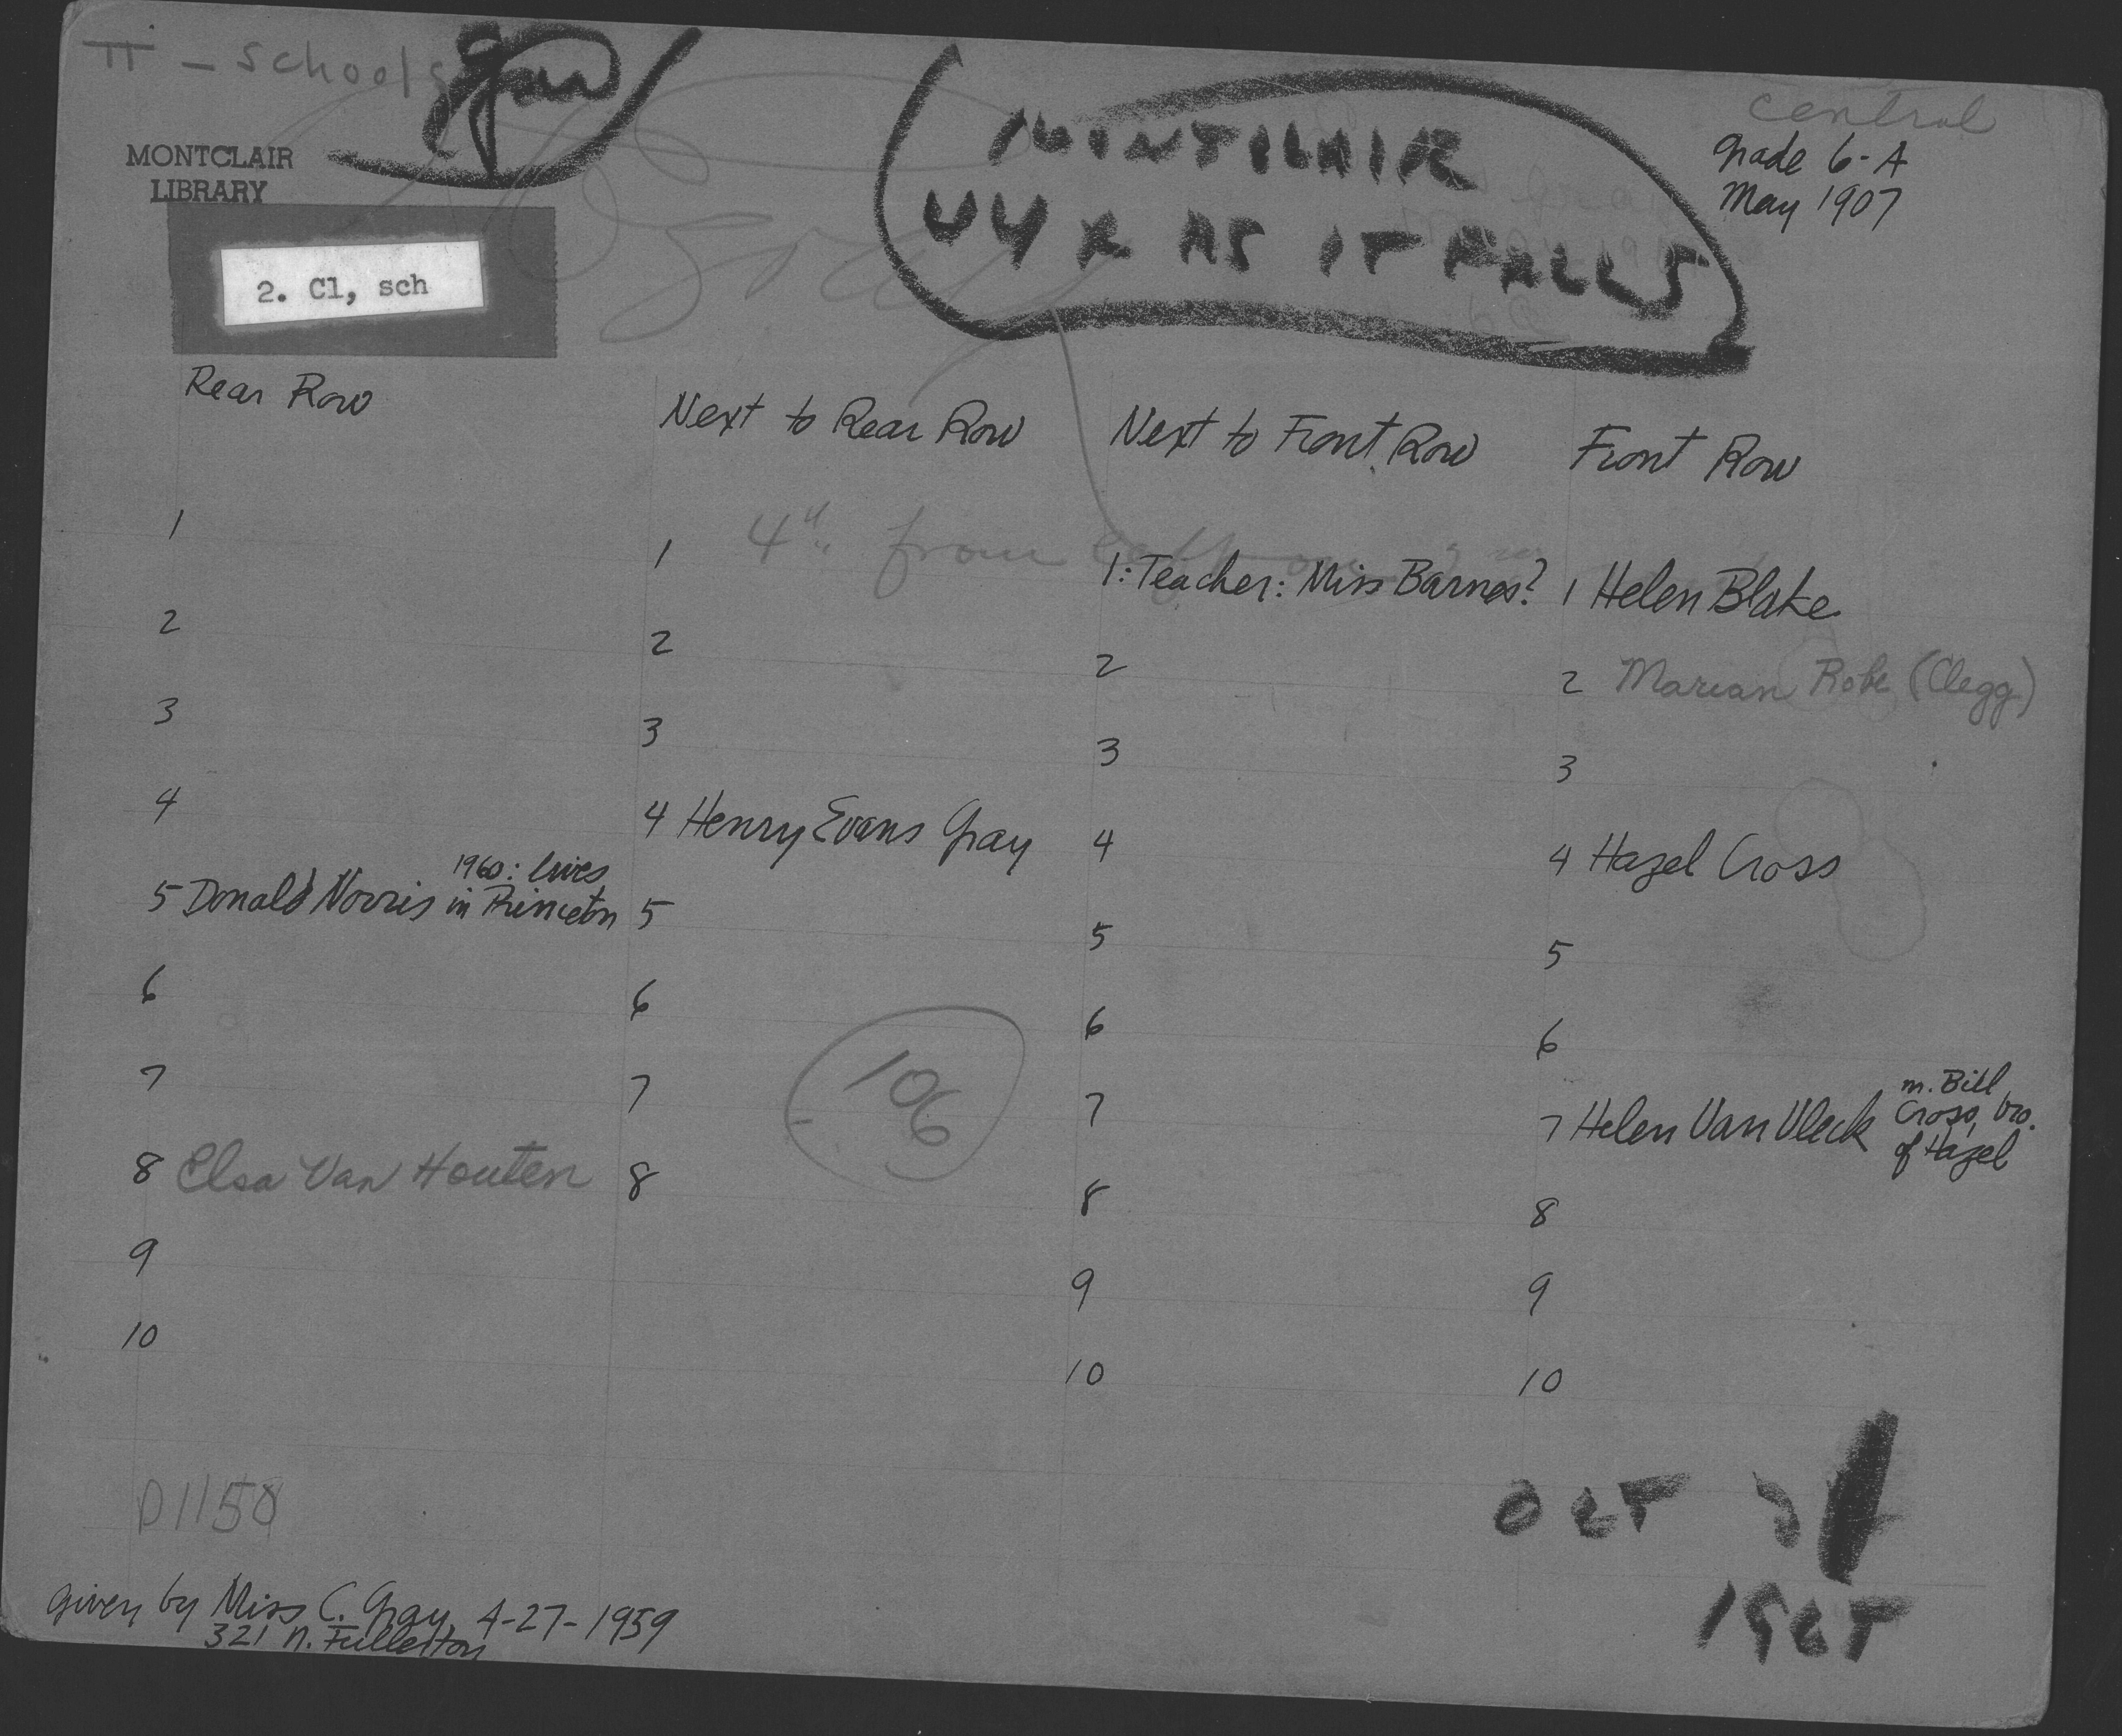 II - Schools
MONTCLAIR
LIBRARY
2. Cl, sch
MONTCLAIR
44 X AS IT FALLS
Central
Grade 6-A
May 1907
Rear Row
1
2
3
4
5 Donald Norris 1960: lives
in Princeton
6
7
8 Elsa Van Houten
9
10
Next to Rear Row
4" from
1
2
3
4 Henry Evans Gray
5
6
7
8
106
Next to Front Row
1: Teacher: Miss Barnes?
2
3
4
5
6
7
8
9
10
Front Row
1 Helen Blake
2 Marian Robe (Clegg)
3
4 Hazel Cross
5
6
7 Helen Van Vleck m. Bill
Cross, bro.
of Hazel
8
9
10
D1150
OCT
given by Miss C. Gray 4-27-1959
321 N. Fullerton